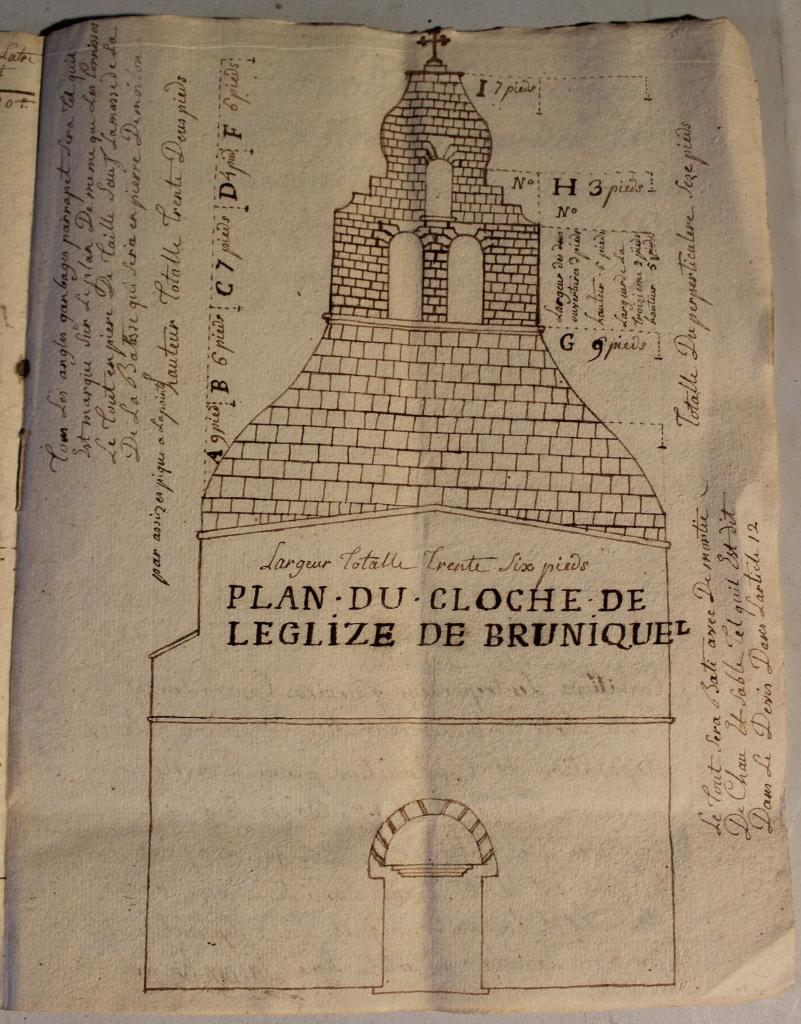 Tous Les angles ganbages parrapet sera tel quil
Est marqué sur Le plan De meme que Les Cornisses
Le Tout en piere De Taille Sauf Lamasse de La
De La Batisse qui sera en pierre De moilon
par assizes pique a Lapointe
hauteur Totalle Trente Deus pieds
A 9 pieds
B 6 pieds
C 7 pieds
D 4 pieds
F 6 pieds
I 7 pieds
N°
H 3 pieds
N°
Largeur des deux
ouvertures 3 pieds
hauteur 8 pieds
Largeur de La
troizieme 2 pieds
hauteur 5 pieds
G 9 pieds
Totalle Du perperticulere Seze pieds
Largeur Totalle Trente Six pieds
PLAN·DU·CLOCHE·DE
LEGLIZE DE BRUNIQUEL
Le Tout Sera Bati avec De mortie
De Chau Et Sable Tel quil Est dit
Dans Le Devis Dans Larticle 12